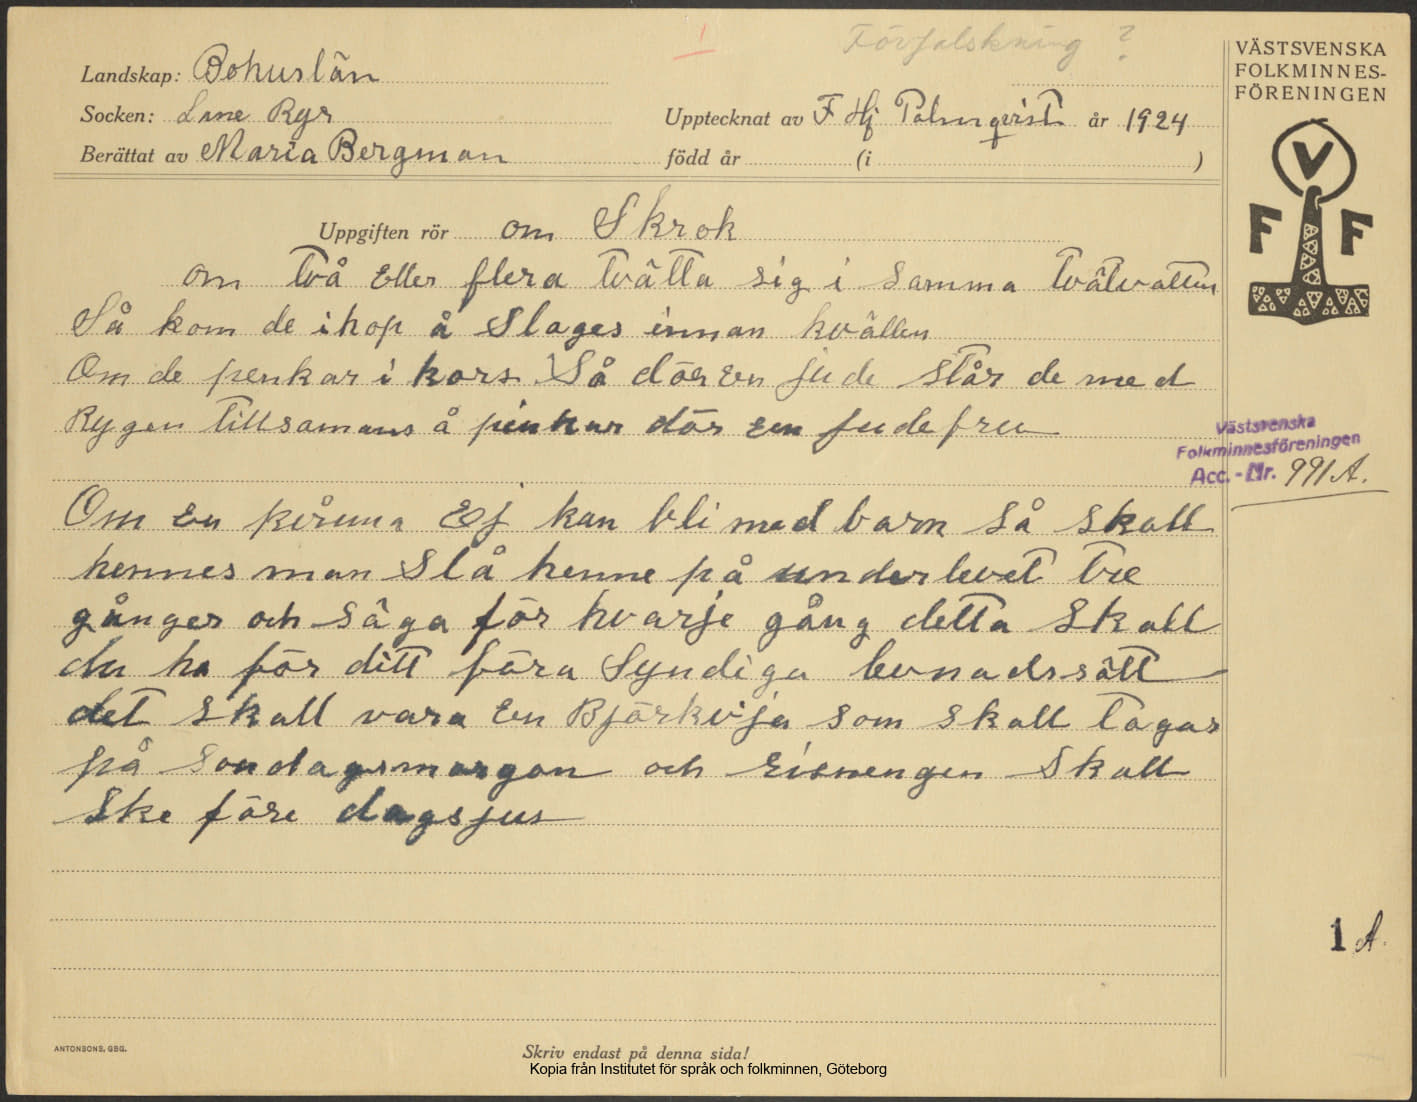 1
Förfalskning ?
Landskap: Bohuslän
Socken: Lane Ryr
Upptecknat av F Hj Palmqvist år 1924
Berättat av Maria Bergman född år (i )
Uppgiften rör om Skrok
om två Eller flera tvätta sig i samma tvätvatten
Så kom de ihop å Slages innan kvällen
Om de penkar i kors Så dör En jude står de med
Rygen tillsamans å pinkar dör En judefru
Om En kvinna Ej kan bli med barn så skall
hennes man Slå henne på underlevet tre
gånger och säga för hvarje gång detta skall
du ha för ditt föra Syndiga levnadssätt
det skall vara En Björkvja som skall tagas
på sondagsmorgon och skall
Ske före dagsjus
VÄSTSVENSKA
FOLKMINNES-
FÖRENINGEN
V
F F
Västsvenska
Folkminnesföreningen
Acc.-Nr. 991 A.
1 A.
ANTONSONS, GBG.
Skriv endast på denna sida!
Kopia från Institutet för språk och folkminnen, Göteborg